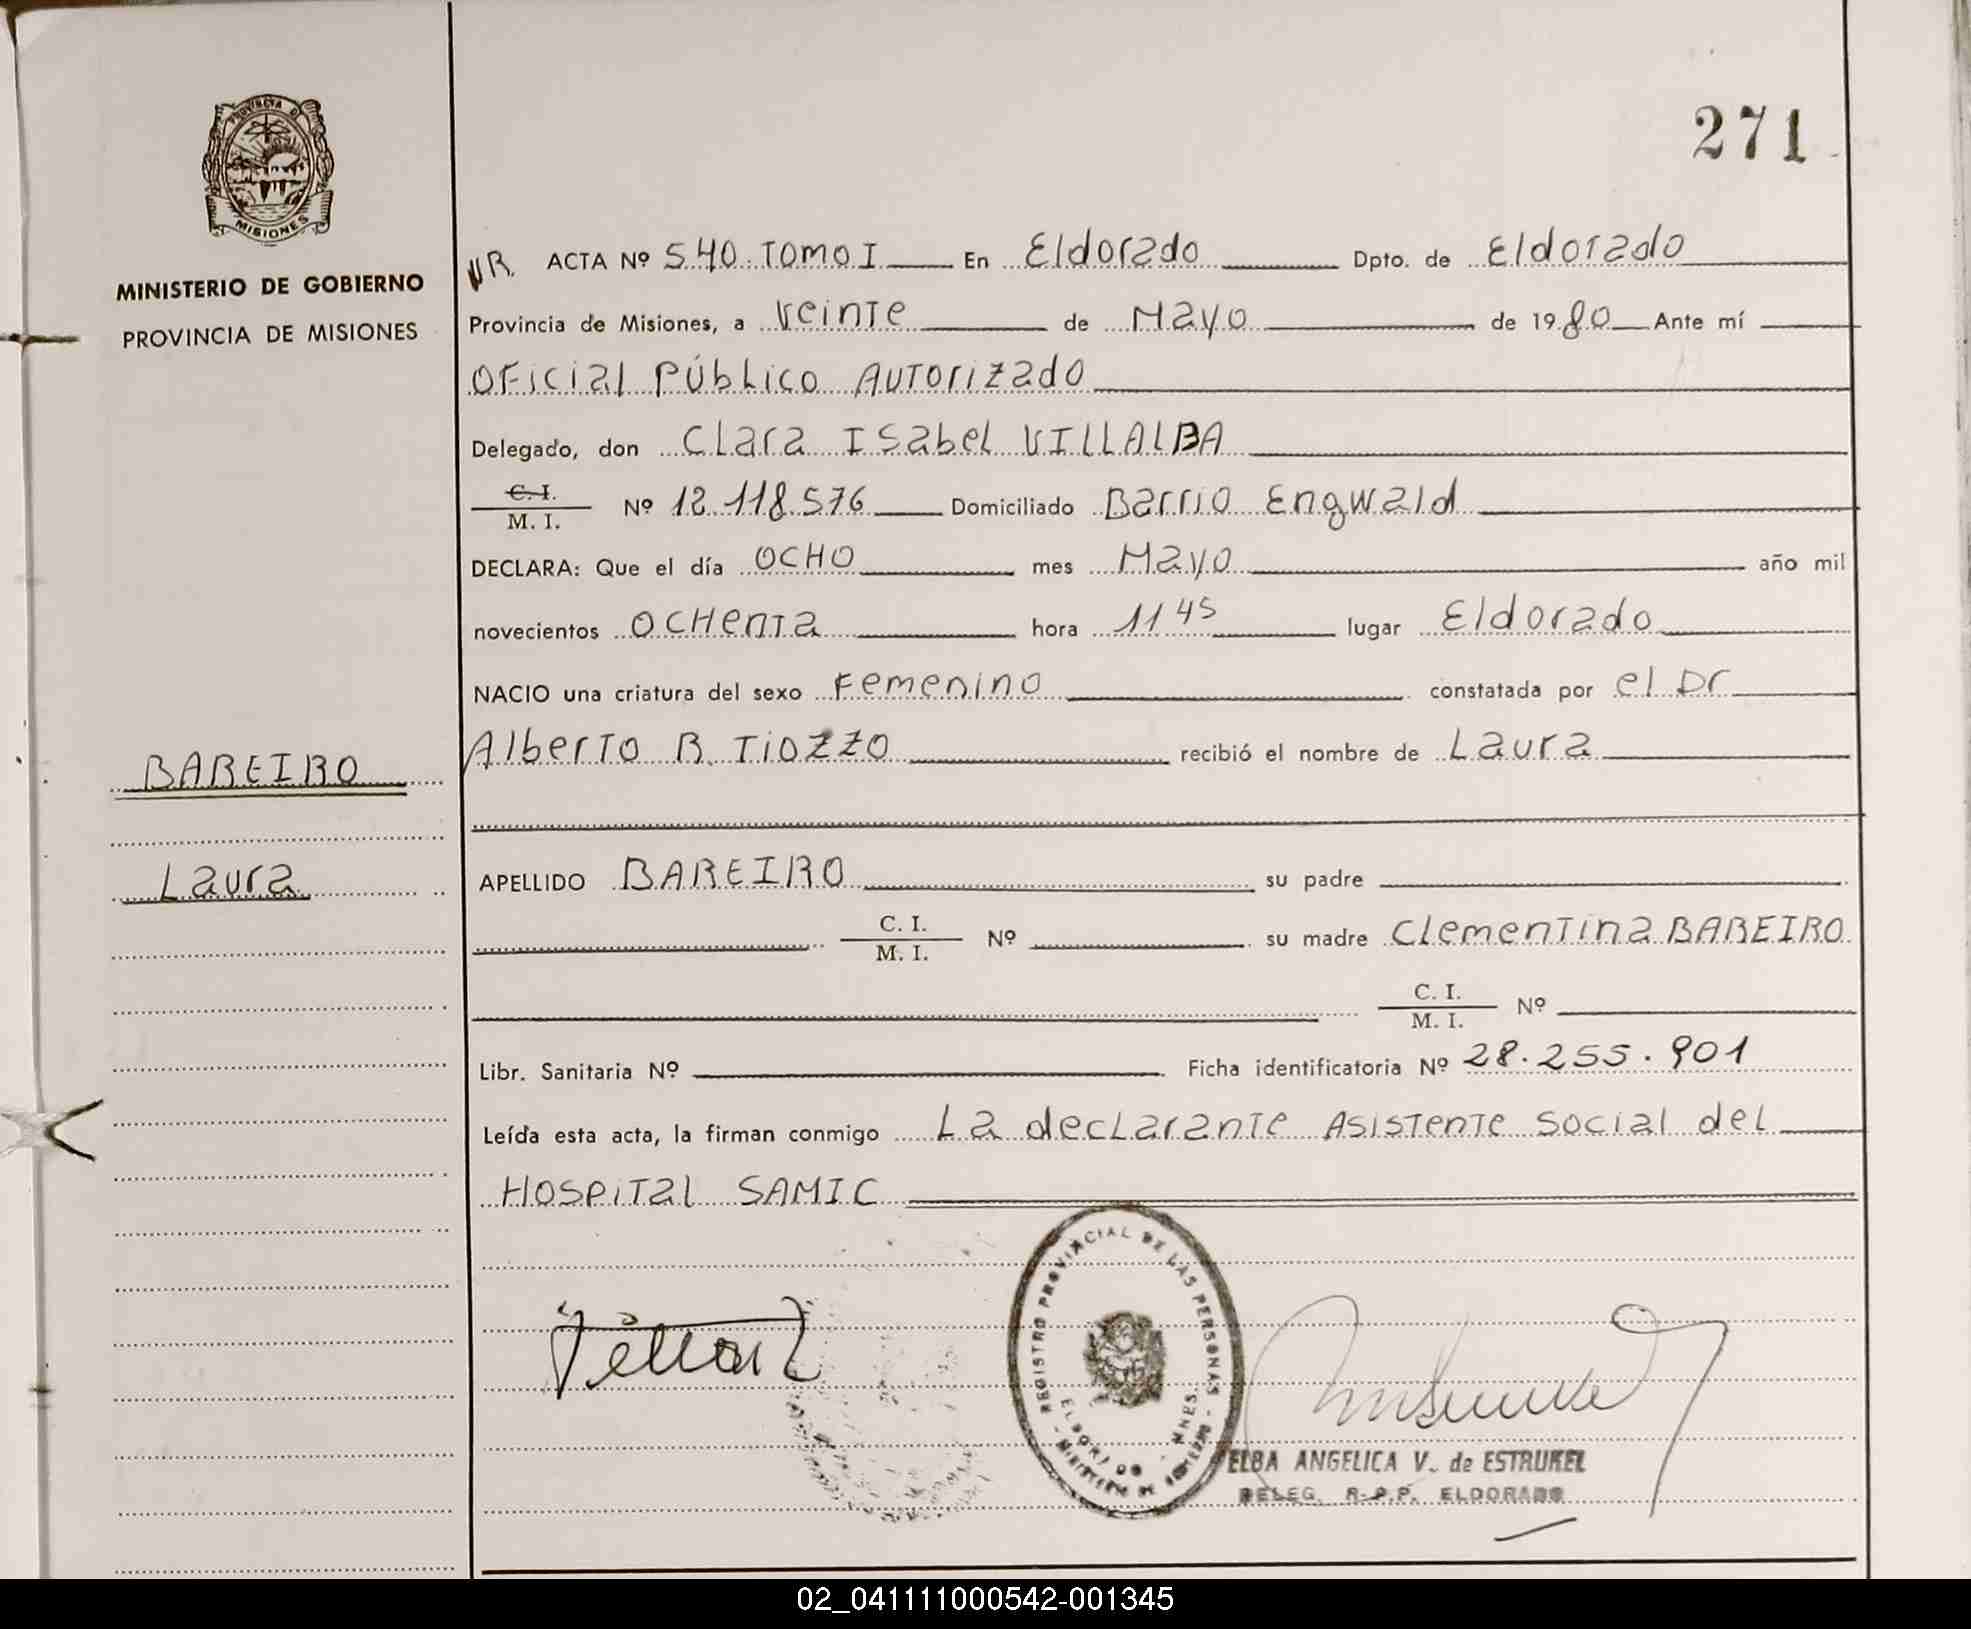 PROVINCIA DE
MISIONES
MINISTERIO DE GOBIERNO
PROVINCIA DE MISIONES
BAREIRO
Laura
271
NR. ACTA Nº 540 TOMO I En Eldorado Dpto. de Eldorado
Provincia de Misiones, a veinte de Mayo de 1980 Ante mí
Oficial Público Autorizado
Delegado, don Clara Isabel VILLALBA
C. I.
M. I. Nº 12.118.576 Domiciliado Barrio Engwald
DECLARA: Que el día OCHO mes Mayo año mil
novecientos OCHenta hora 11 45 lugar Eldorado
NACIO una criatura del sexo Femenino constatada por el Dr
Alberto R. Tiozzo recibió el nombre de Laura
APELLIDO BAREIRO su padre
C. I.
M. I. Nº su madre Clementina BAREIRO
C. I.
M. I. Nº
Libr. Sanitaria Nº Ficha identificatoria Nº 28.255.901
Leída esta acta, la firman conmigo La declarante Asistente social del
Hospital SAMIC
REGISTRO PROVINCIAL DE LAS PERSONAS
- MINISTERIO DE GOBIERNO -
ELDORADO MNES.
ELBA ANGELICA V. de ESTRUKEL
DELEG. R.P.P. ELDORADO
02_041111000542-001345